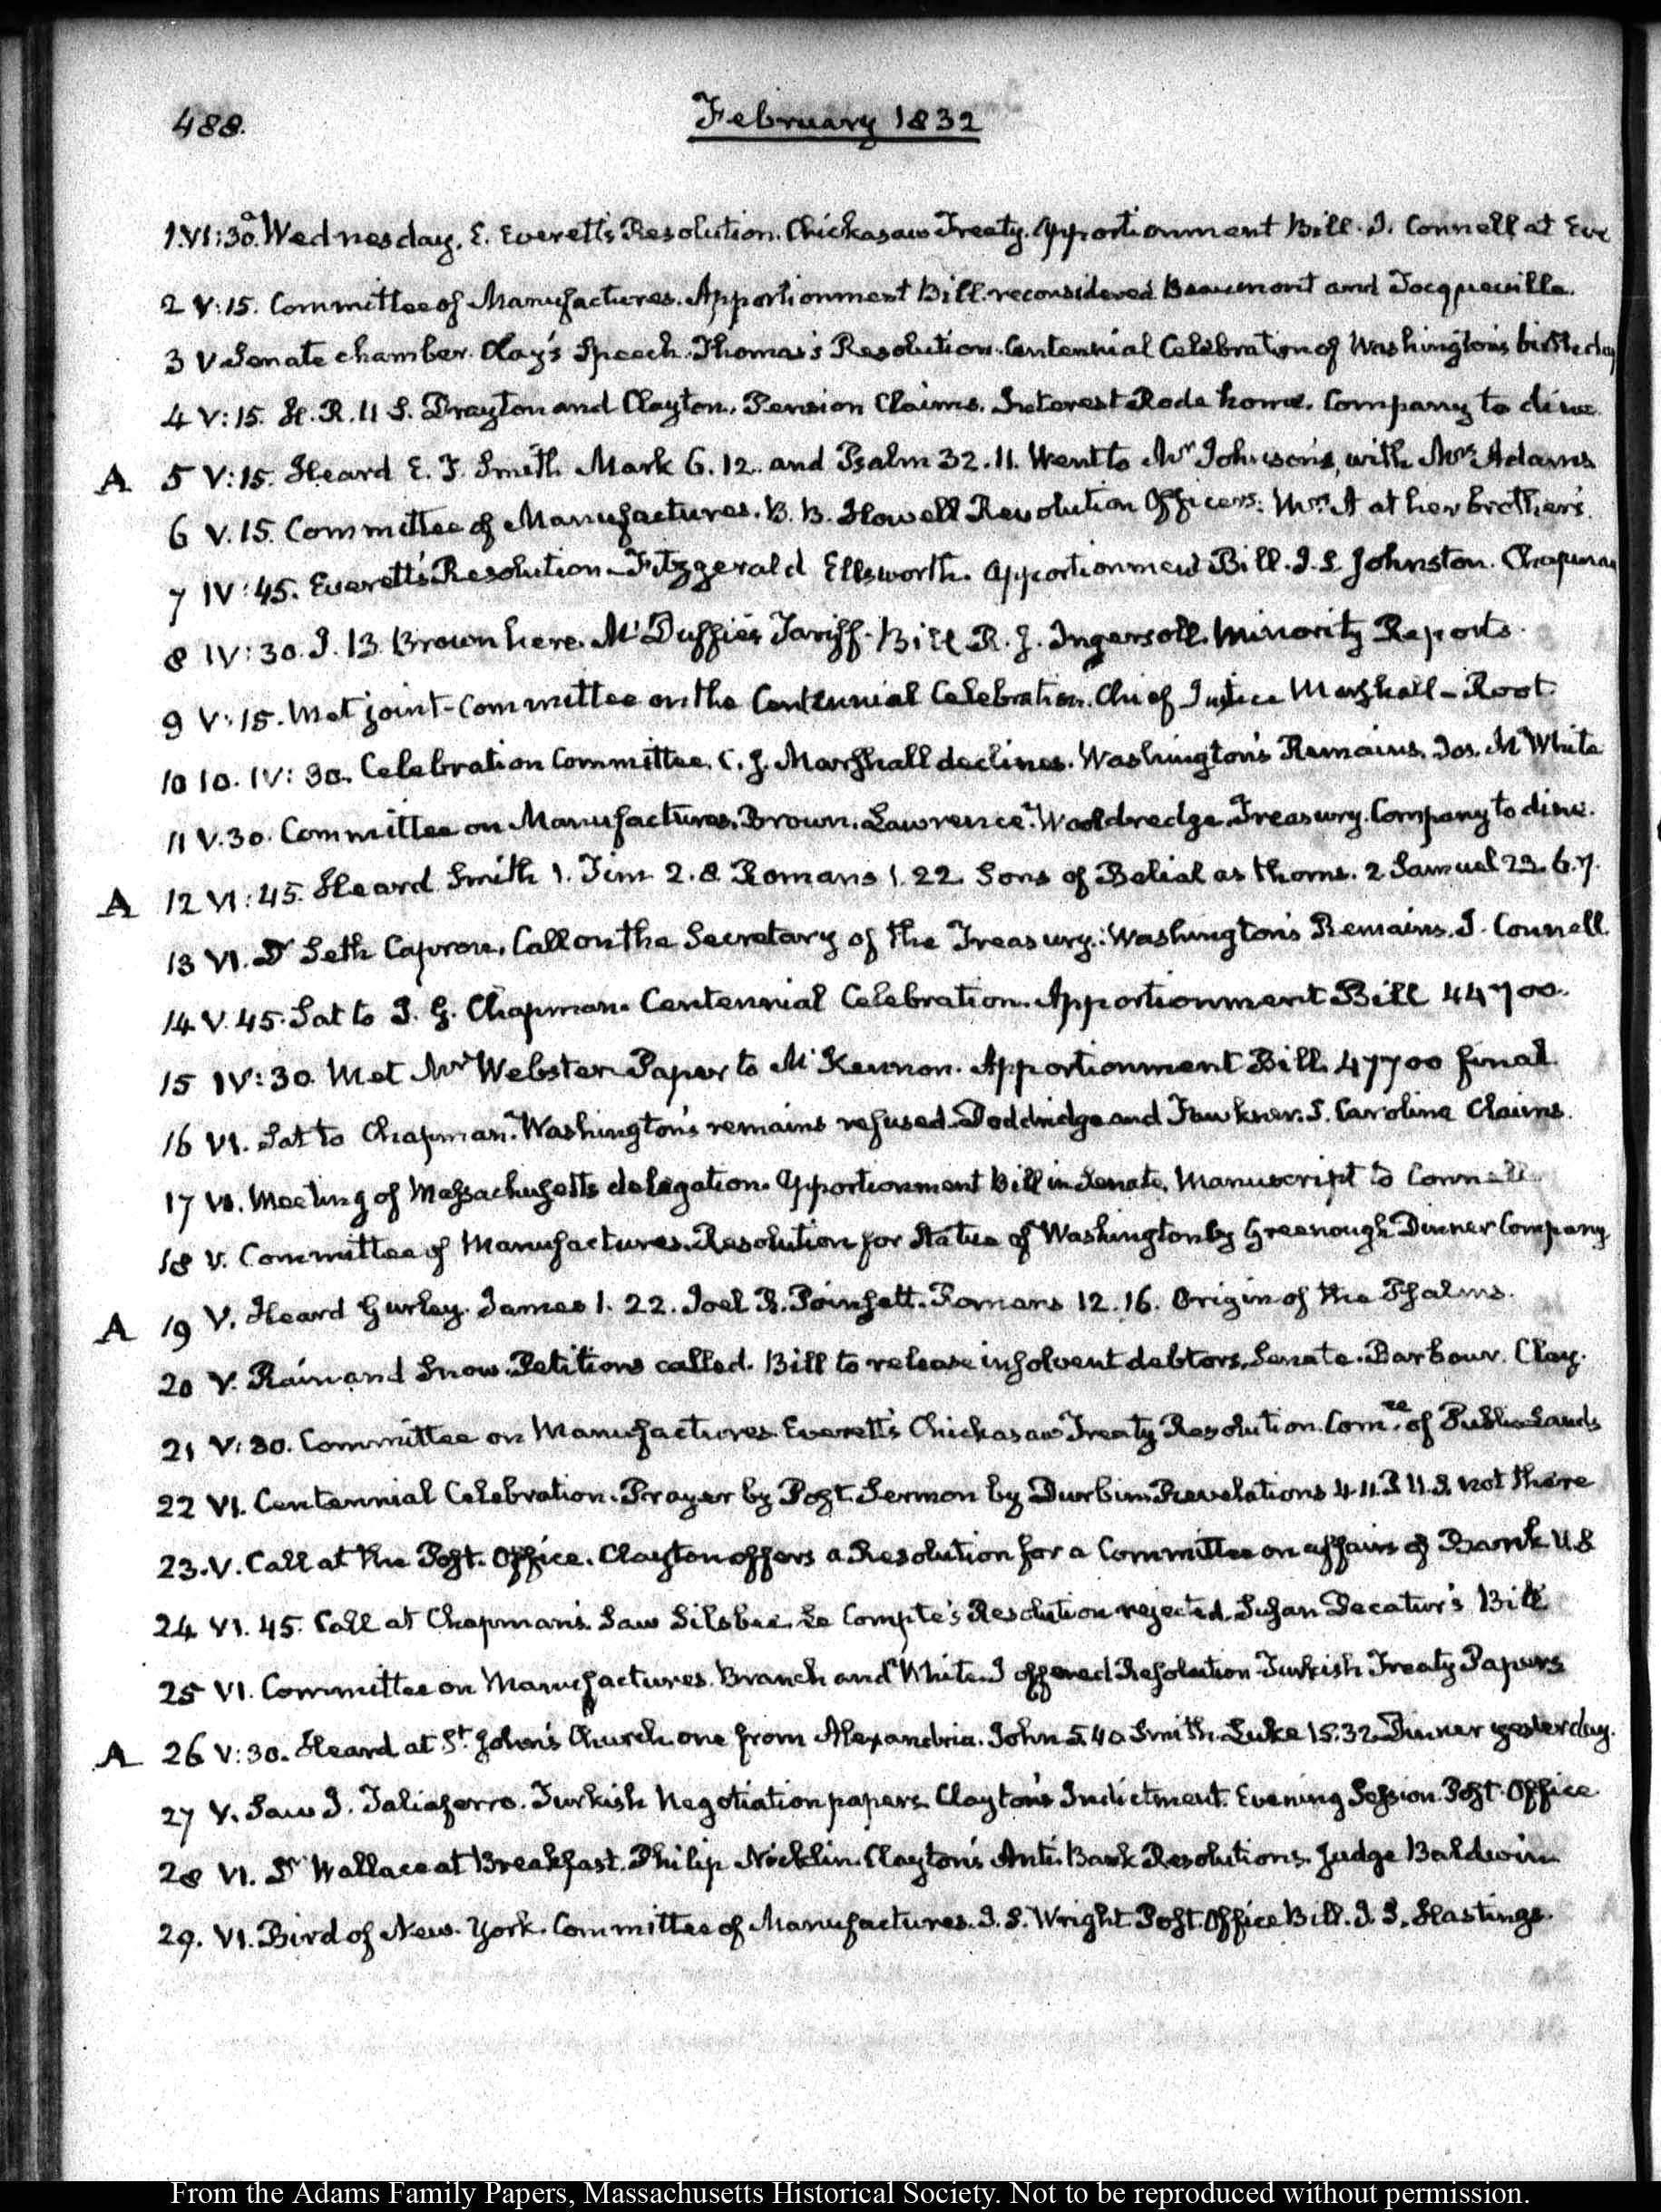 488.
February 1832
1. VI:30. a Wednesday. E. Everett's Resolution. Chickasaw Treaty. Apportionment Bill. J. Connell at Eve
2 V:15. Committee of Manufactures. Apportionment Bill. reconsidered Beaumont and Tocqueville.
3 V Senate chamber. Clay's Speech. Thomas's Resolution. Centennial Celebration of Washington's birthday
4 V:15. H. R. U S. Drayton and Clayton. Pension Claims. Interest Rode home. Company to dine.
A 5 V:15. Heard E. J. Smith Mark 6.12. and Psalm 32.11. Went to Mr Johnson's, with Mrs Adams
6 V.15. Committee of Manufactures. B. B. Howell Revolution Officers. Mrs A at her brother's.
7 IV:45. Everett's Resolution—Fitzgerald Ellsworth. Apportionment Bill. J. S. Johnston. Chapman
8 IV:30. J. B. Brown here. McDuffie's Tariff-Bill R. J. Ingersoll. Minority Reports.
9 V:15. Met joint-Committee on the Centennial Celebration. Chief Justice Marshall—Root.
10 10. IV:30. Celebration Committee. C. J. Marshall declines. Washington's Remains. Jos. M. White
11 V.30. Committee on Manufactures. Brown. Lawrence. Wooldredge. Treasury. Company to dine.
A 12 VI:45. Heard Smith 1. Tim 2.8 Romans 1.22. Sons of Belial as thorns. 2. Samuel 23.6.7.
13 VI. Dr Seth Capron. Call on the Secretary of the Treasury. Washington's Remains. J. Connell.
14. V.45. Sat to J. G. Chapman. Centennial Celebration. Apportionment Bill 44700.
15 IV:30. Met Mr Webster Paper to McKennon. Apportionment Bill. 47700 final
16 VI. Sat to Chapman. Washington's remains refused. Doddridge and Fawkner. S. Carolina Claims.
17 VI. Meeting of Massachusetts delegation. Apportionment Bill in Senate. Manuscript to Connell
18 V. Committee of Manufactures. Resolution for Statue of Washington by Greenough. Dinner Company
A 19 V. Heard Gurley. James 1.22. Joel R. Poinsett. Romans 12.16. Origin of the Psalms.
20 V. Rain and Snow. Petitions called. Bill to release insolvent debtors. Senate. Barbour. Clay.
21 V:30. Committee on Manufactures. Everett's Chickasaw Treaty Resolution. Comee of Public Lands
22 VI. Centennial Celebration. Prayer by Post. Sermon by Durbin. Revelations 4.11. P. U.S. not there
23. V. Call at the Post. Office. Clayton offers a Resolution for a Committee on affairs of Bank U.S
24 VI. 45. Call at Chapman's. Saw Silsbee. Le Compte's Resolution rejected. Susan Decatur's Bill
25 VI. Committee on Manufactures. Branch and White. I offered Resolution Turkish Treaty Papers
A 26 V:30. Heard at St John's Church one from Alexandria. John 5.40 Smith. Luke 15.32. Dinner yesterday.
27 V. Saw J. Taliaferro. Turkish Negotiation papers. Clayton's Indictment. Evening Session. Post. Office
28 VI. Dr Wallace at Breakfast. Philip Nicklin. Clayton's Anti. Bank Resolutions. Judge Baldwin
29. VI. Bird of New. York. Committee of Manufactures. J. S. Wright. Post. Office Bill. J. S. Hastings.
From the Adams Family Papers, Massachusetts Historical Society. Not to be reproduced without permission.